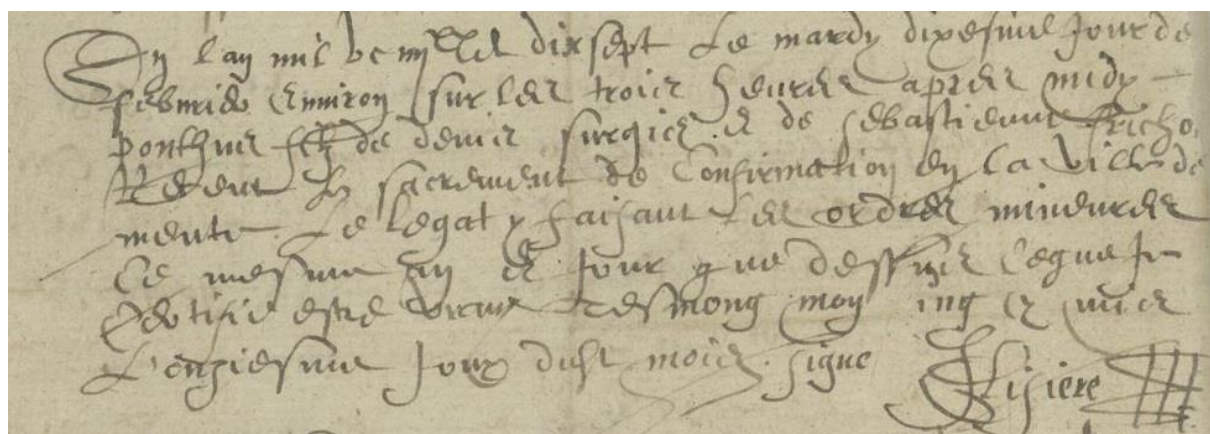 En l an mil vc iiiixx et dix sept Le mardy dixesme Jour de
febvrier Environ sur les trois heures apres midy
ponthus filz de denis surgier et de sebastienne fricho
Receut le sacrement de Confirmation en la ville de
mente Le Legat y faisant les ordres mineures
Ce mesme an et Jour que dessus Ce que Je
Certifie estre vray tesmong moy sing cy mis
L'onziesme Jour dudit mois signe